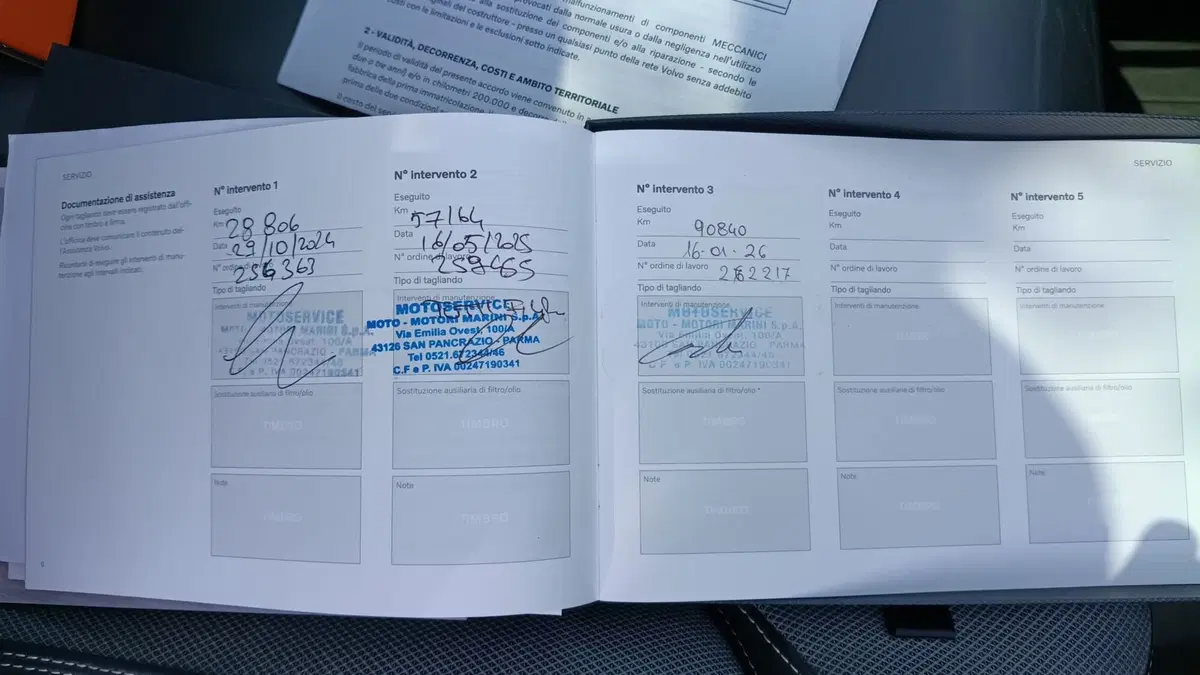 malfunzionamenti di componenti MECCANICI
provocati dalla normale usura o dalla negligenza nell'utilizzo
alla sostituzione dei componenti e/o alla riparazione - secondo le
originali del costruttore - presso un qualsiasi punto della rete Volvo senza addebito
costi con le limitazioni e le esclusioni sotto indicate.
2 - VALIDITÀ, DECORRENZA, COSTI E AMBITO TERRITORIALE
Il periodo di validità del presente accordo viene convenuto in
due o tre anni) e/o in chilometri 200.000 e
fabbrica della prima immatricolazione
prima delle due condizioni
Il costo del
SERVIZIO
Documentazione di assistenza
Ogni tagliando deve essere registrato dall'offi-
cina con timbro e firma.
L'officina deve comunicare il contenuto del-
l'Assistenza Volvo.
Ricordarsi di eseguire gli interventi di manu-
tenzione agli intervalli indicati.
9
N° intervento 1
Eseguito
Km 28 806
Data 29/10/2024
N° ordine di lavoro
Tipo di tagliando
Interventi di manutenzione
MOTOSERVICE
Sostituzione ausiliaria di filtro/olio
TIMBRO
Note
TIMBRO
N° intervento 2
Eseguito
Km 57164
Data 16/05/2025
N° ordine di lavoro
Tipo di tagliando
Interventi di manutenzione
MOTOSERVICE
MOTO - MOTORI MARINI S.p.A.
Via Emilia Ovest, 100/A
43126 SAN PANCRAZIO - PARMA
Tel 0521.672344/46
C.F e P. IVA 00247190341
Sostituzione ausiliaria di filtro/olio
TIMBRO
Note
TIMBRO
SERVIZIO
N° intervento 3
Eseguito
Km 90840
Data 16-01-26
N° ordine di lavoro 262217
Tipo di tagliando
Interventi di manutenzione
MOTOSERVICE
MOTO - MOTORI MARINI S.p.A.
Via Emilia Ovest, 100/A
Sostituzione ausiliaria di filtro/olio *
TIMBRO
Note
TIMBRO
N° intervento 4
Eseguito
Km
Data
N° ordine di lavoro
Tipo di tagliando
Interventi di manutenzione
Sostituzione ausiliaria di filtro/olio
TIMBRO
Note
TIMBRO
N° intervento 5
Eseguito
Km
Data
N° ordine di lavoro
Tipo di tagliando
Interventi di manutenzione
Sostituzione ausiliaria di filtro/olio
TIMBRO
Note
TIMBRO